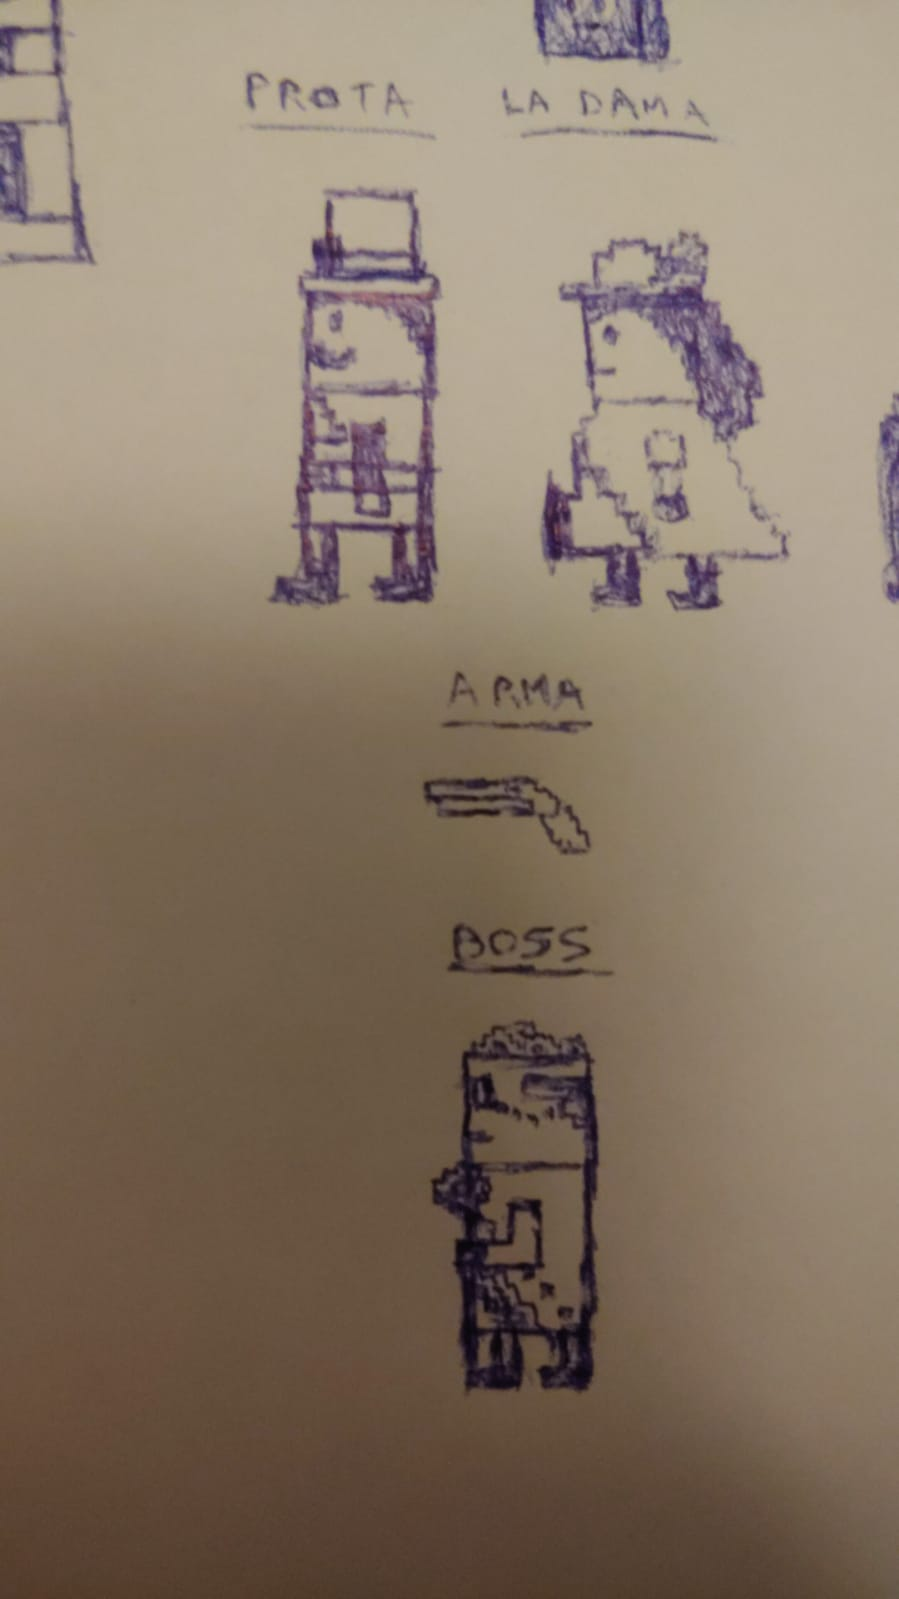 PROTA
LA DAMA
ARMA
BOSS